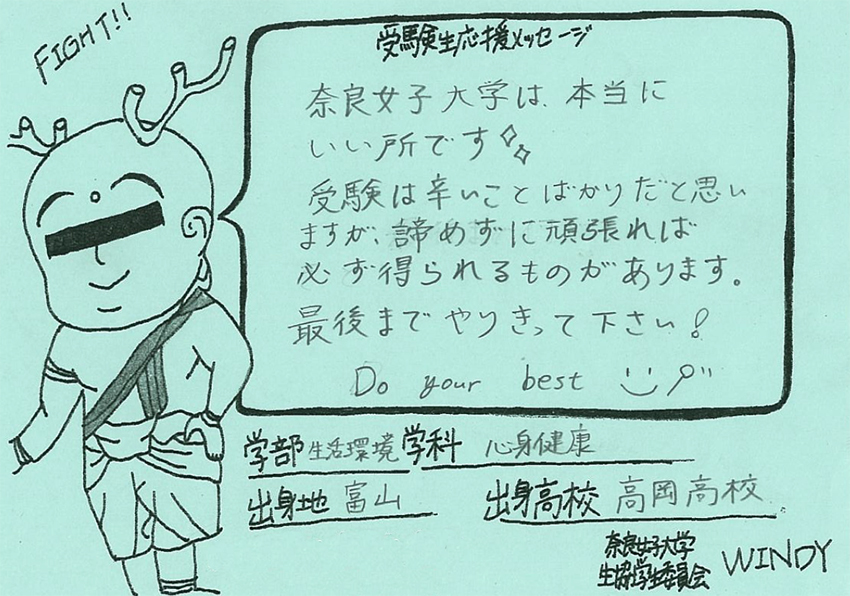 FIGHT!!
受験生応援メッセージ
奈良女子大学は、本当に
いい所です
受験は辛いことばかりだと思い
ますが、諦めずに頑張れば
必ず得られるものがあります。
最後までやりきって下さい!
Do your best
学部 生活環境 学科 心身健康
出身地 富山 出身高校 高岡高校
奈良女子大学
生協学生委員会 WINDY